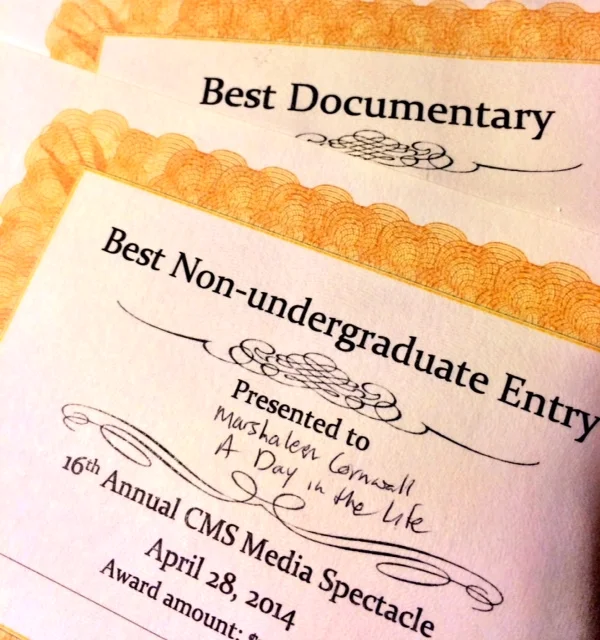 Best Documentary
Best Non-undergraduate Entry
Presented to
Cornwall
A Day in the Life
16th Annual CMS Media Spectacle
April 28, 2014
Award amount: $